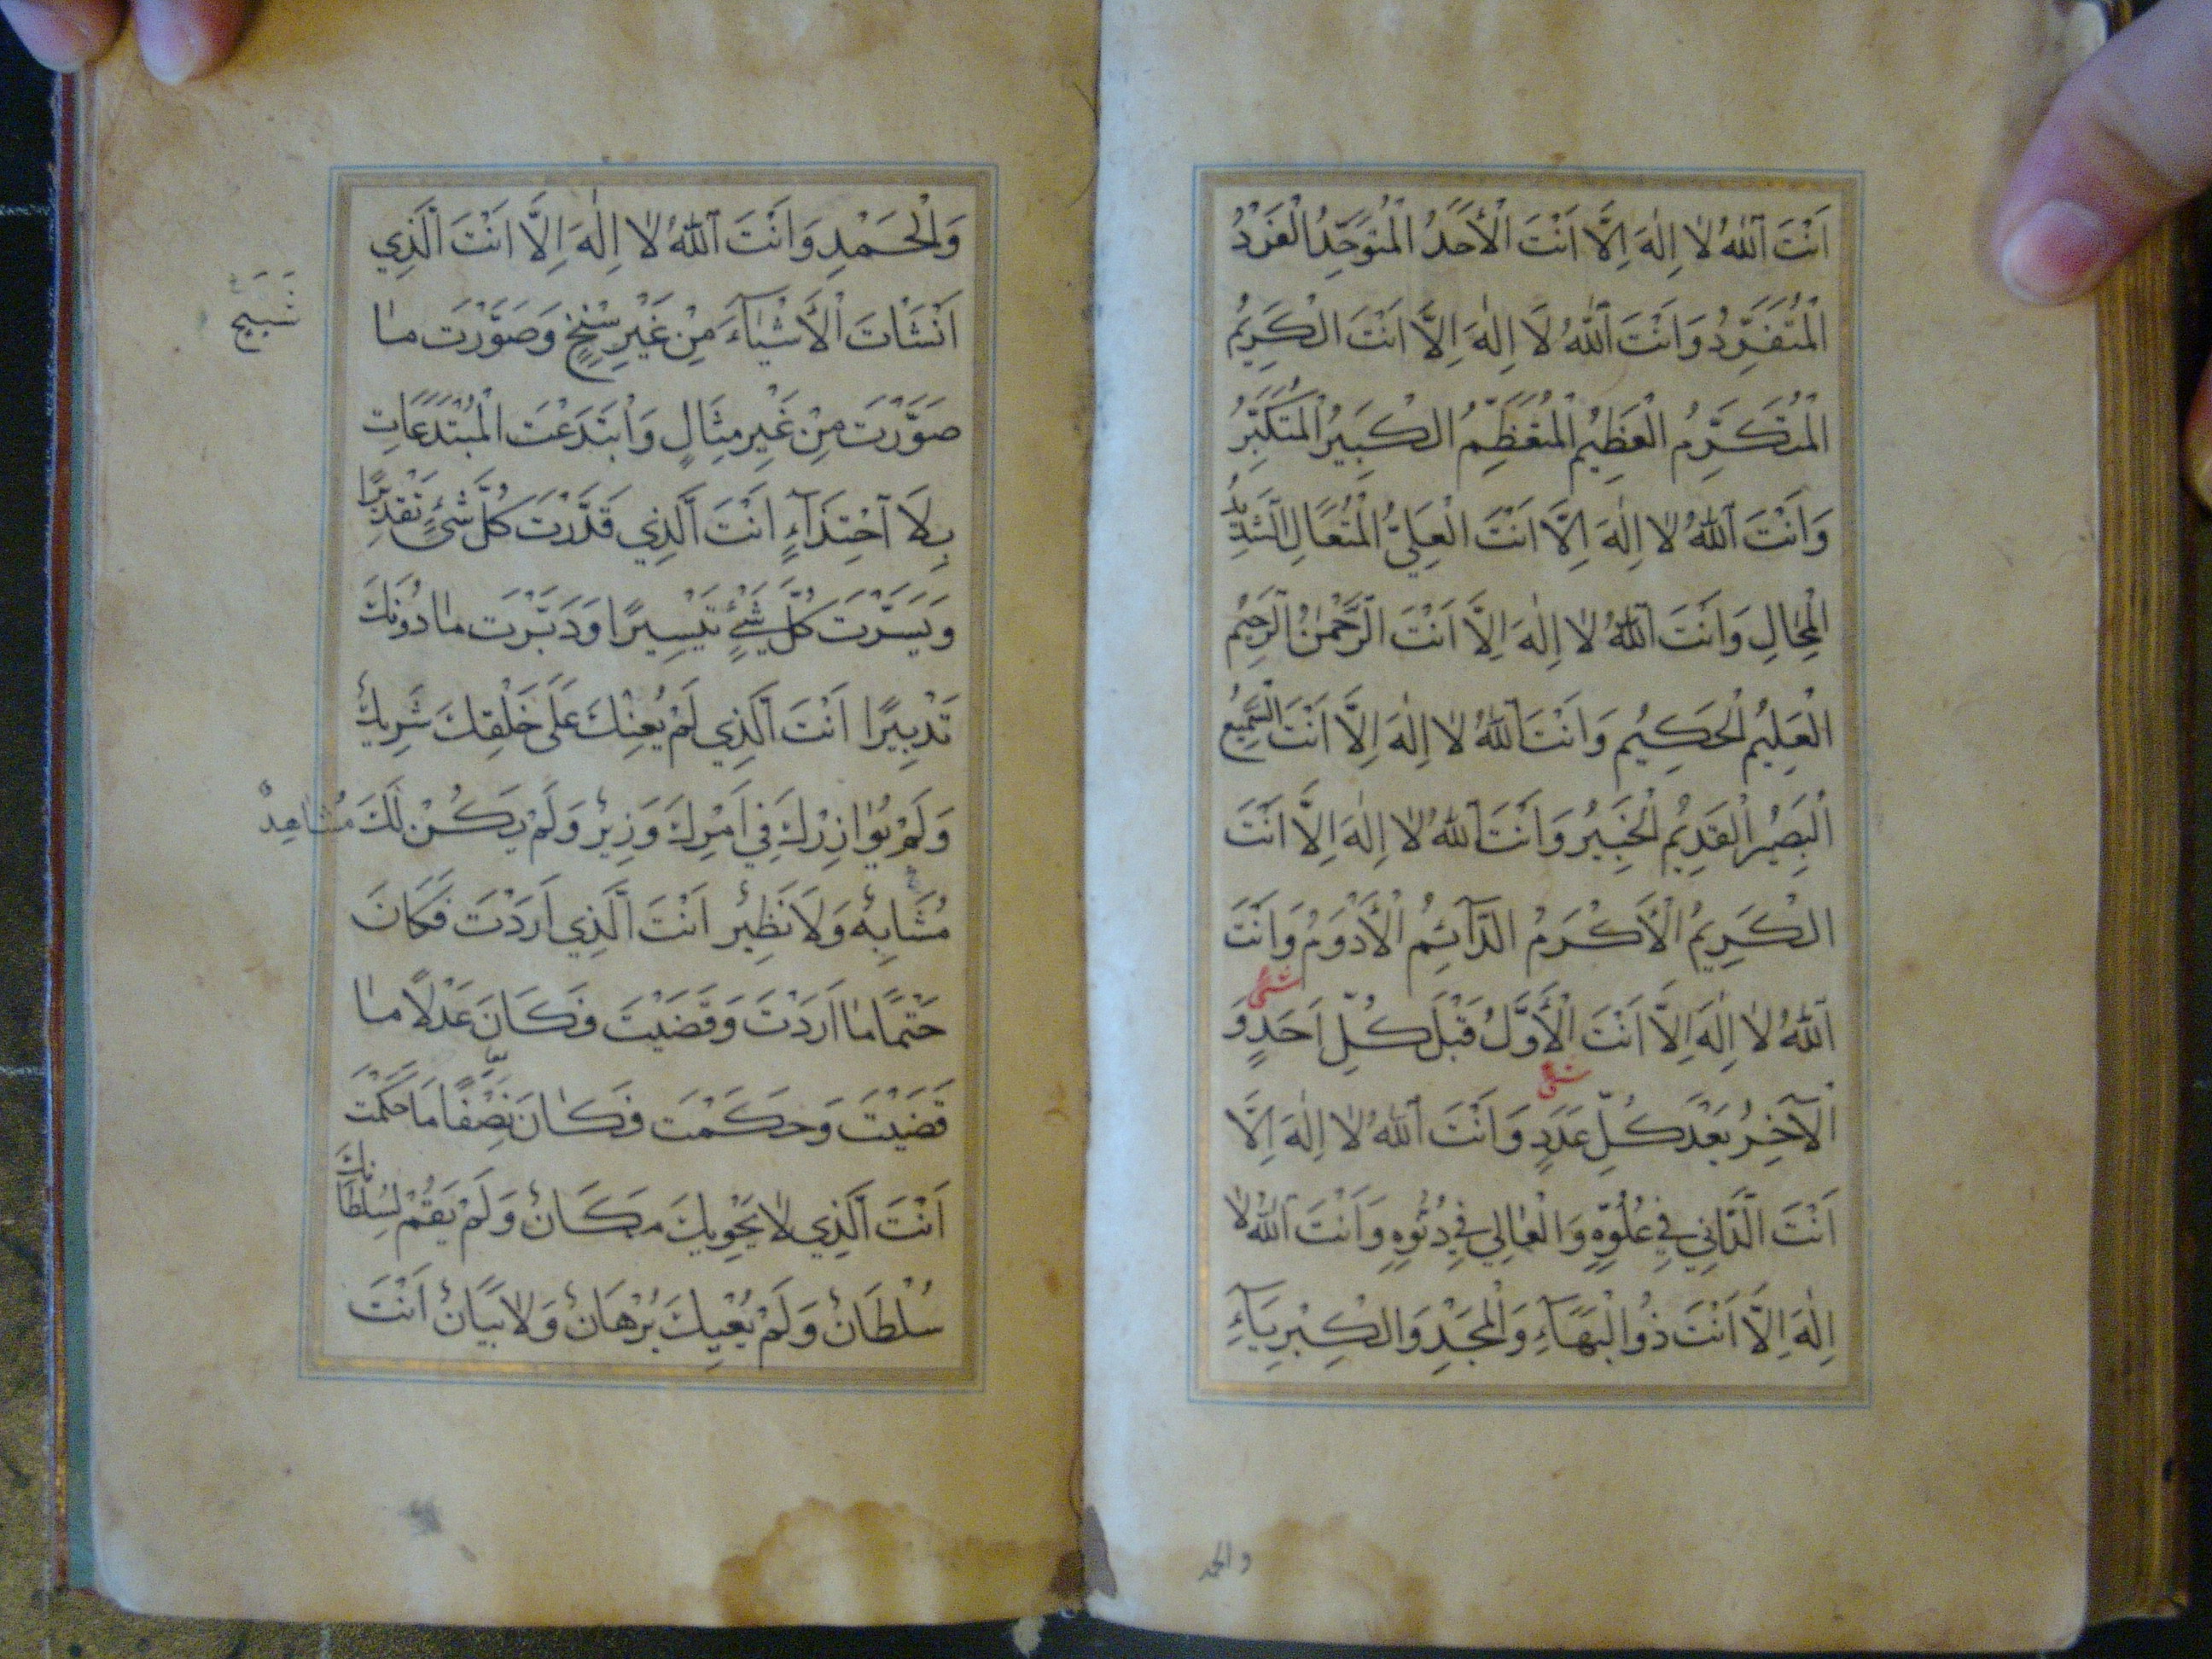 اَنْتَ اللهُ لا اِلٰهَ اِلَّا اَنْتَ الْأَحَدُ الْمُتَوَحِّدُ الْفَرْدُ
الْمُتَفَرِّدُ وَاَنْتَ اللهُ لَا اِلٰهَ اِلَّا اَنْتَ الْكَرِيمُ
الْمُتَكَرِّمُ الْعَظِيمُ الْمُتَعَظِّمُ الْكَبِيرُ الْمُتَكَبِّرُ
وَاَنْتَ اللهُ لا اِلٰهَ اِلَّا اَنْتَ الْعَلِيُّ الْمُتَعَالِ الشَّدِيدُ
الْمِحَالِ وَاَنْتَ اللهُ لا اِلٰهَ اِلَّا اَنْتَ الرَّحْمٰنُ الرَّحِيمُ
الْعَلِيمُ الْحَكِيمُ وَاَنْتَ اللهُ لا اِلٰهَ اِلَّا اَنْتَ السَّمِيعُ
الْبَصِيرُ الْقَدِيمُ الْخَبِيرُ وَاَنْتَ اللهُ لا اِلٰهَ اِلَّا اَنْتَ
الْكَرِيمُ الْأَكْرَمُ الدَّآئِمُ الْأَدْوَمُ وَاَنْتَ
اللهُ لا اِلٰهَ اِلَّا اَنْتَ الْأَوَّلُ قَبْلَ كُلِّ اَحَدٍ وَ
الْآخِرُ بَعْدَ كُلِّ عَدَدٍ وَاَنْتَ اللهُ لا اِلٰهَ اِلَّا
اَنْتَ الدَّانِي فِي عُلُوِّهِ وَالْعَالِي فِي دُنُوِّهِ وَاَنْتَ اللهُ لا
اِلٰهَ اِلَّا اَنْتَ ذُو الْبَهَآءِ وَالْمَجْدِ وَالْكِبْرِيَآءِ
والحمد
وَالْحَمْدِ وَاَنْتَ اللهُ لا اِلٰهَ اِلَّا اَنْتَ الَّذِي
اَنْشَاتَ الْأَشْيَآءَ مِنْ غَيْرِ سِنْخٍ وَصَوَّرْتَ مَا
صَوَّرْتَ مِنْ غَيْرِ مِثَالٍ وَابْتَدَعْتَ الْمُبْتَدَعَاتِ
بِلَا احْتِذَآءٍ اَنْتَ الَّذِي قَدَّرْتَ كُلَّ شَئٍ تَقْدِيرًا
وَيَسَّرْتَ كُلَّ شَيْءٍ تَيْسِيرًا وَدَبَّرْتَ مَا دُونَكَ
تَدْبِيرًا اَنْتَ الَّذِي لَمْ يُعِنْكَ عَلَى خَلْقِكَ شَرِيكٌ
وَلَمْ يُوازِرْكَ فِي اَمْرِكَ وَزِيرٌ وَلَمْ يَكُنْ لَكَ مُشَاهِدٌ
مُشَابِهٌ وَلَا نَظِيرٌ اَنْتَ الَّذِي اَرَدْتَ فَكَانَ
حَتْمًا مَا اَرَدْتَ وَقَضَيْتَ فَكَانَ عَدْلًا مَا
قَضَيْتَ وَحَكَمْتَ فَكَانَ نِصْفًا مَا حَكَمْتَ
اَنْتَ الَّذِي لا يَحْوِيكَ مَكَانٌ وَلَمْ يَقُمْ لِسُلْطَانِكَ
سُلْطَانٌ وَلَمْ يُعْيِكَ بُرْهَانٌ وَلَا بَيَانٌ اَنْتَ